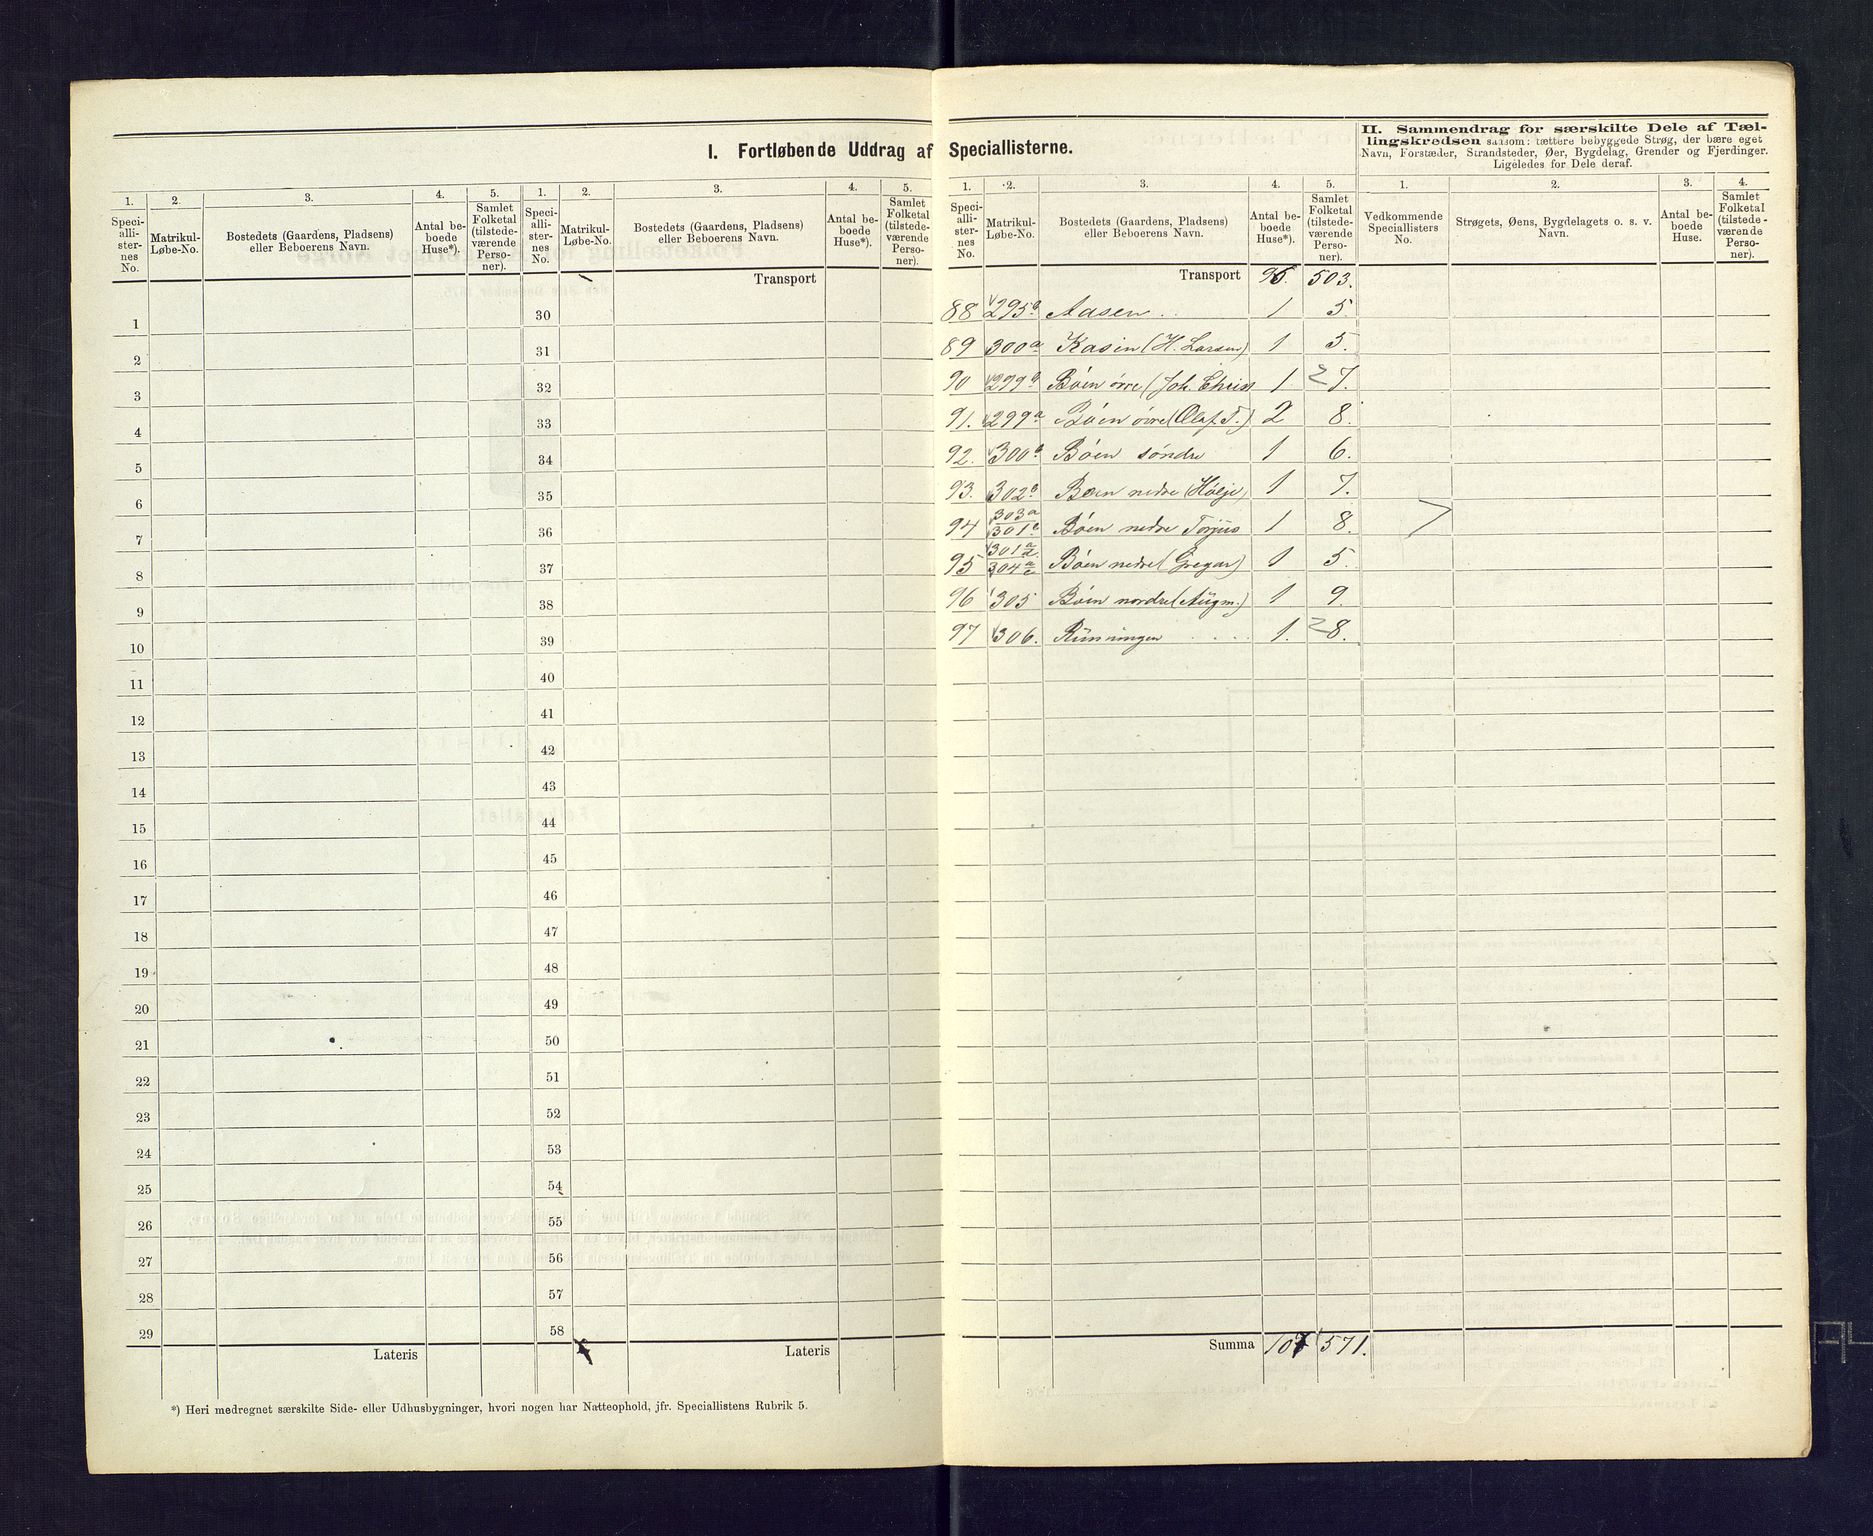 I. Fortløbende Uddrag af Speciallisterne.
II. Sammendrag for særskilte Dele af Tæl-
lingskredsen saasom: tættere bebyggede Strøg, der bære eget
Navn, Forstæder, Strandsteder, Øer, Bygdelag, Grender og Fjerdinger.
Ligeledes for Dele deraf.
1. 2. 3. 4. 5. 1. 2. 3. 4. 5.
Speci-
alli-
ster-
nes
No.
Matrikul-
Løbe-No.
Bostedets (Gaardens, Pladsens)
eller Beboerens Navn.
Antal be-
boede
Huse*).
Samlet
Folketal
(tilstede-
værende
Perso-
ner).
Speci-
alli-
ster-
nes
No.
Matrikul-
Løbe-No.
Bostedets (Gaardens, Pladsens)
eller Beboerens Navn.
Antal be-
boede
Huse*).
Samlet
Folketal
(tilstede-
værende
Perso-
ner).
Transport
1 30
2 31
3 32
4 33
5 34
6 35
7 36
8 37
9 38
10 39
11 40
12 41
13 42
14 43
15 44
16 45
17 46
18 47
19 48
20 49
21 50
22 51
23 52
24 53
25 54
26 55
27 56
28 57
29 58
Lateris Lateris
*) Heri medregnet særskilte Side- eller Udhusbygninger, hvori nogen har Natteophold, jfr. Speciallistens Rubrik 5.
1. 2. 3. 4. 5. 1. 2. 3. 4.
Speci-
alli-
ster-
nes
No.
Matrikul-
Løbe-No.
Bostedets (Gaardens, Pladsens)
eller Beboerens Navn.
Antal be-
boede
Huse*).
Samlet
Folketal
(tilstede-
værende
Perso-
ner).
Vedkommende
Speciallisters
No.
Strøgets, Øens, Bygdelagets o. s. v.
Navn.
Antal be-
boede
Huse.
Samlet
Folketal
(tilstede-
værende
Perso-
ner).
Transport 503.
88 295b Aasen 1 5.
89 300a Kasin (H. Larsen) 1 5.
90 299b Böen övre (Joh. Chris 1 7.
91. 299a Böen övre (Olaf T.) 2 8.
92. 300b Böen söndre 1 6.
93. 302b Bøen nedre (Hölje) 1 7.
94 303a 301b Böen nedre Torjus 1 8.
95 301a 304a Böen nedre (Gregar) 1 5.
96 305 Böen nordre (Augm.) 1 9.
97 306. Runningen 1. 8.
Summa 107 571.